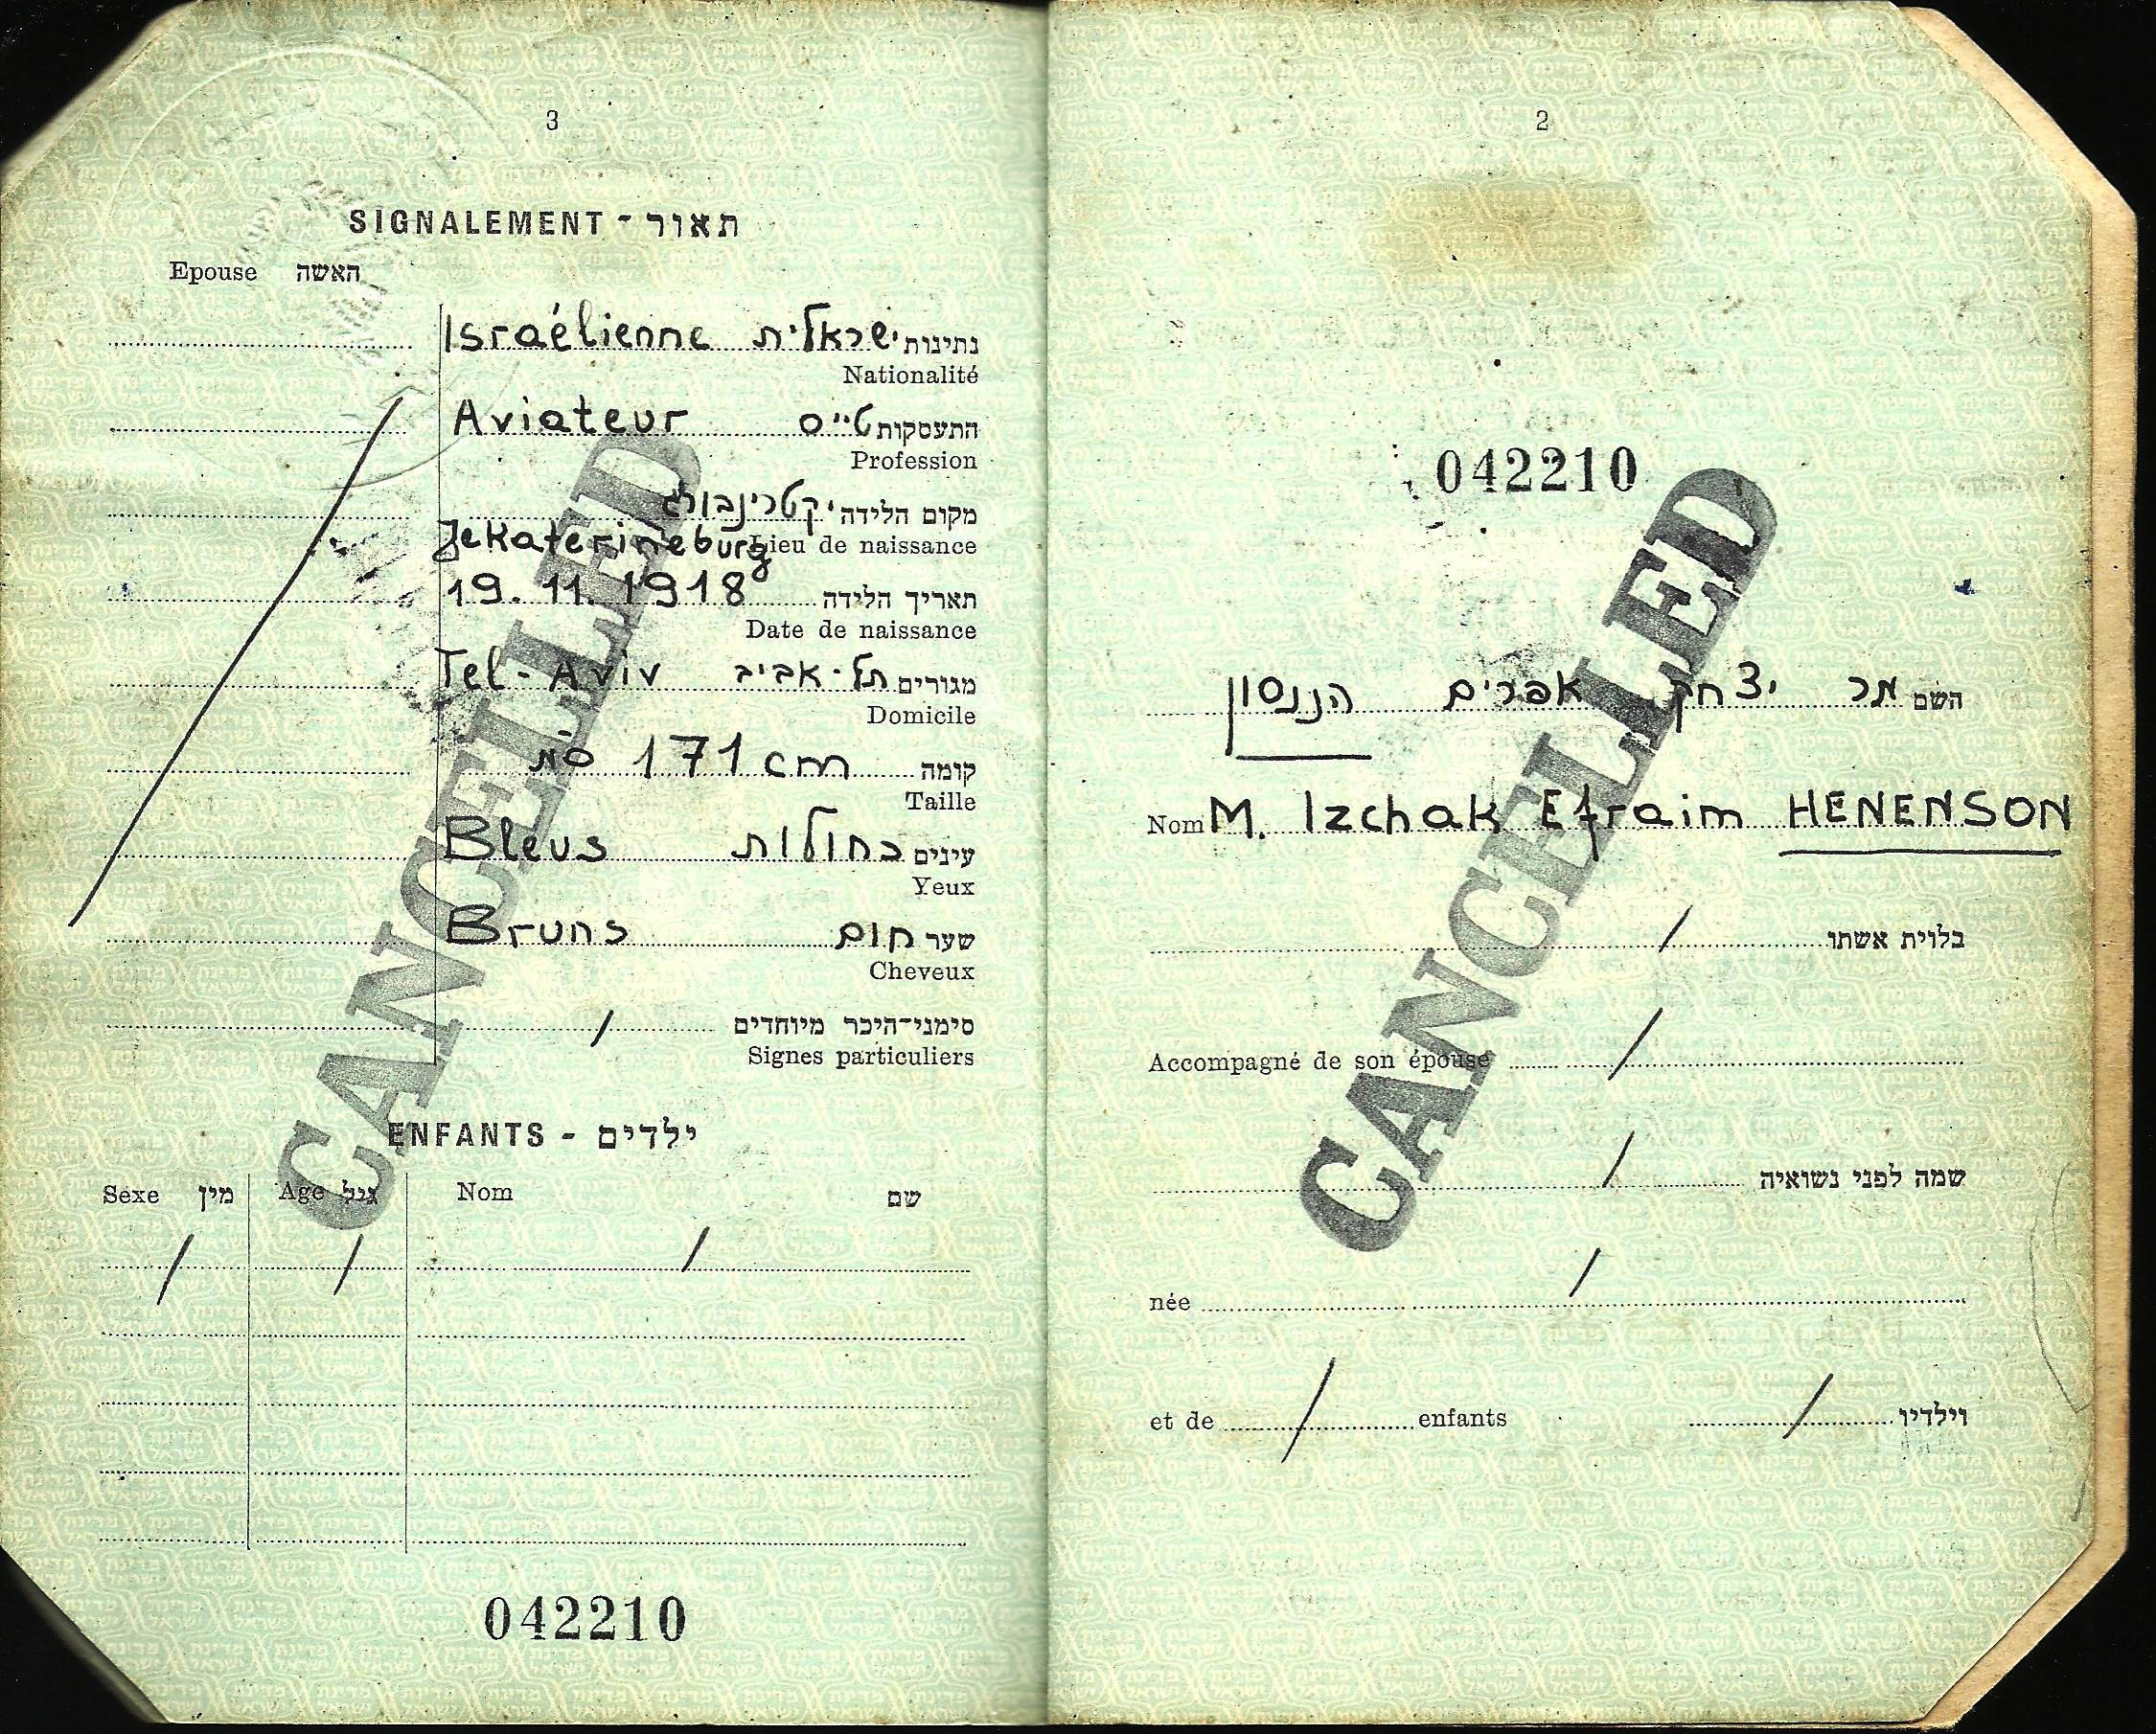 2
042210
השם מר יצחק אפרים הננסון
Nom M. Izchak Efraim HENENSON
בלוית אשתו /
Accompagné de son épouse /
שמה לפני נשואיה /
née /
et de / enfants / וילדיו
CANCELLED
3
SIGNALEMENT - תאור
Epouse האשה
Israélienne ישראלית נתינות
Nationalité
Aviateur טייס התעסקות
Profession
יקטרינבורג מקום הלידה
Jekaterineburg Lieu de naissance
19.11.1918 תאריך הלידה
Date de naissance
Tel-Aviv תל-אביב מגורים
Domicile
171 cm ס"מ קומה
Taille
Bleus כחולות עינים
Yeux
Bruns חום שער
Cheveux
/ סימני-היכר מיוחדים
Signes particuliers
ENFANTS - ילדים
Sexe מין Age גיל Nom שם
/ / /
042210
CANCELLED